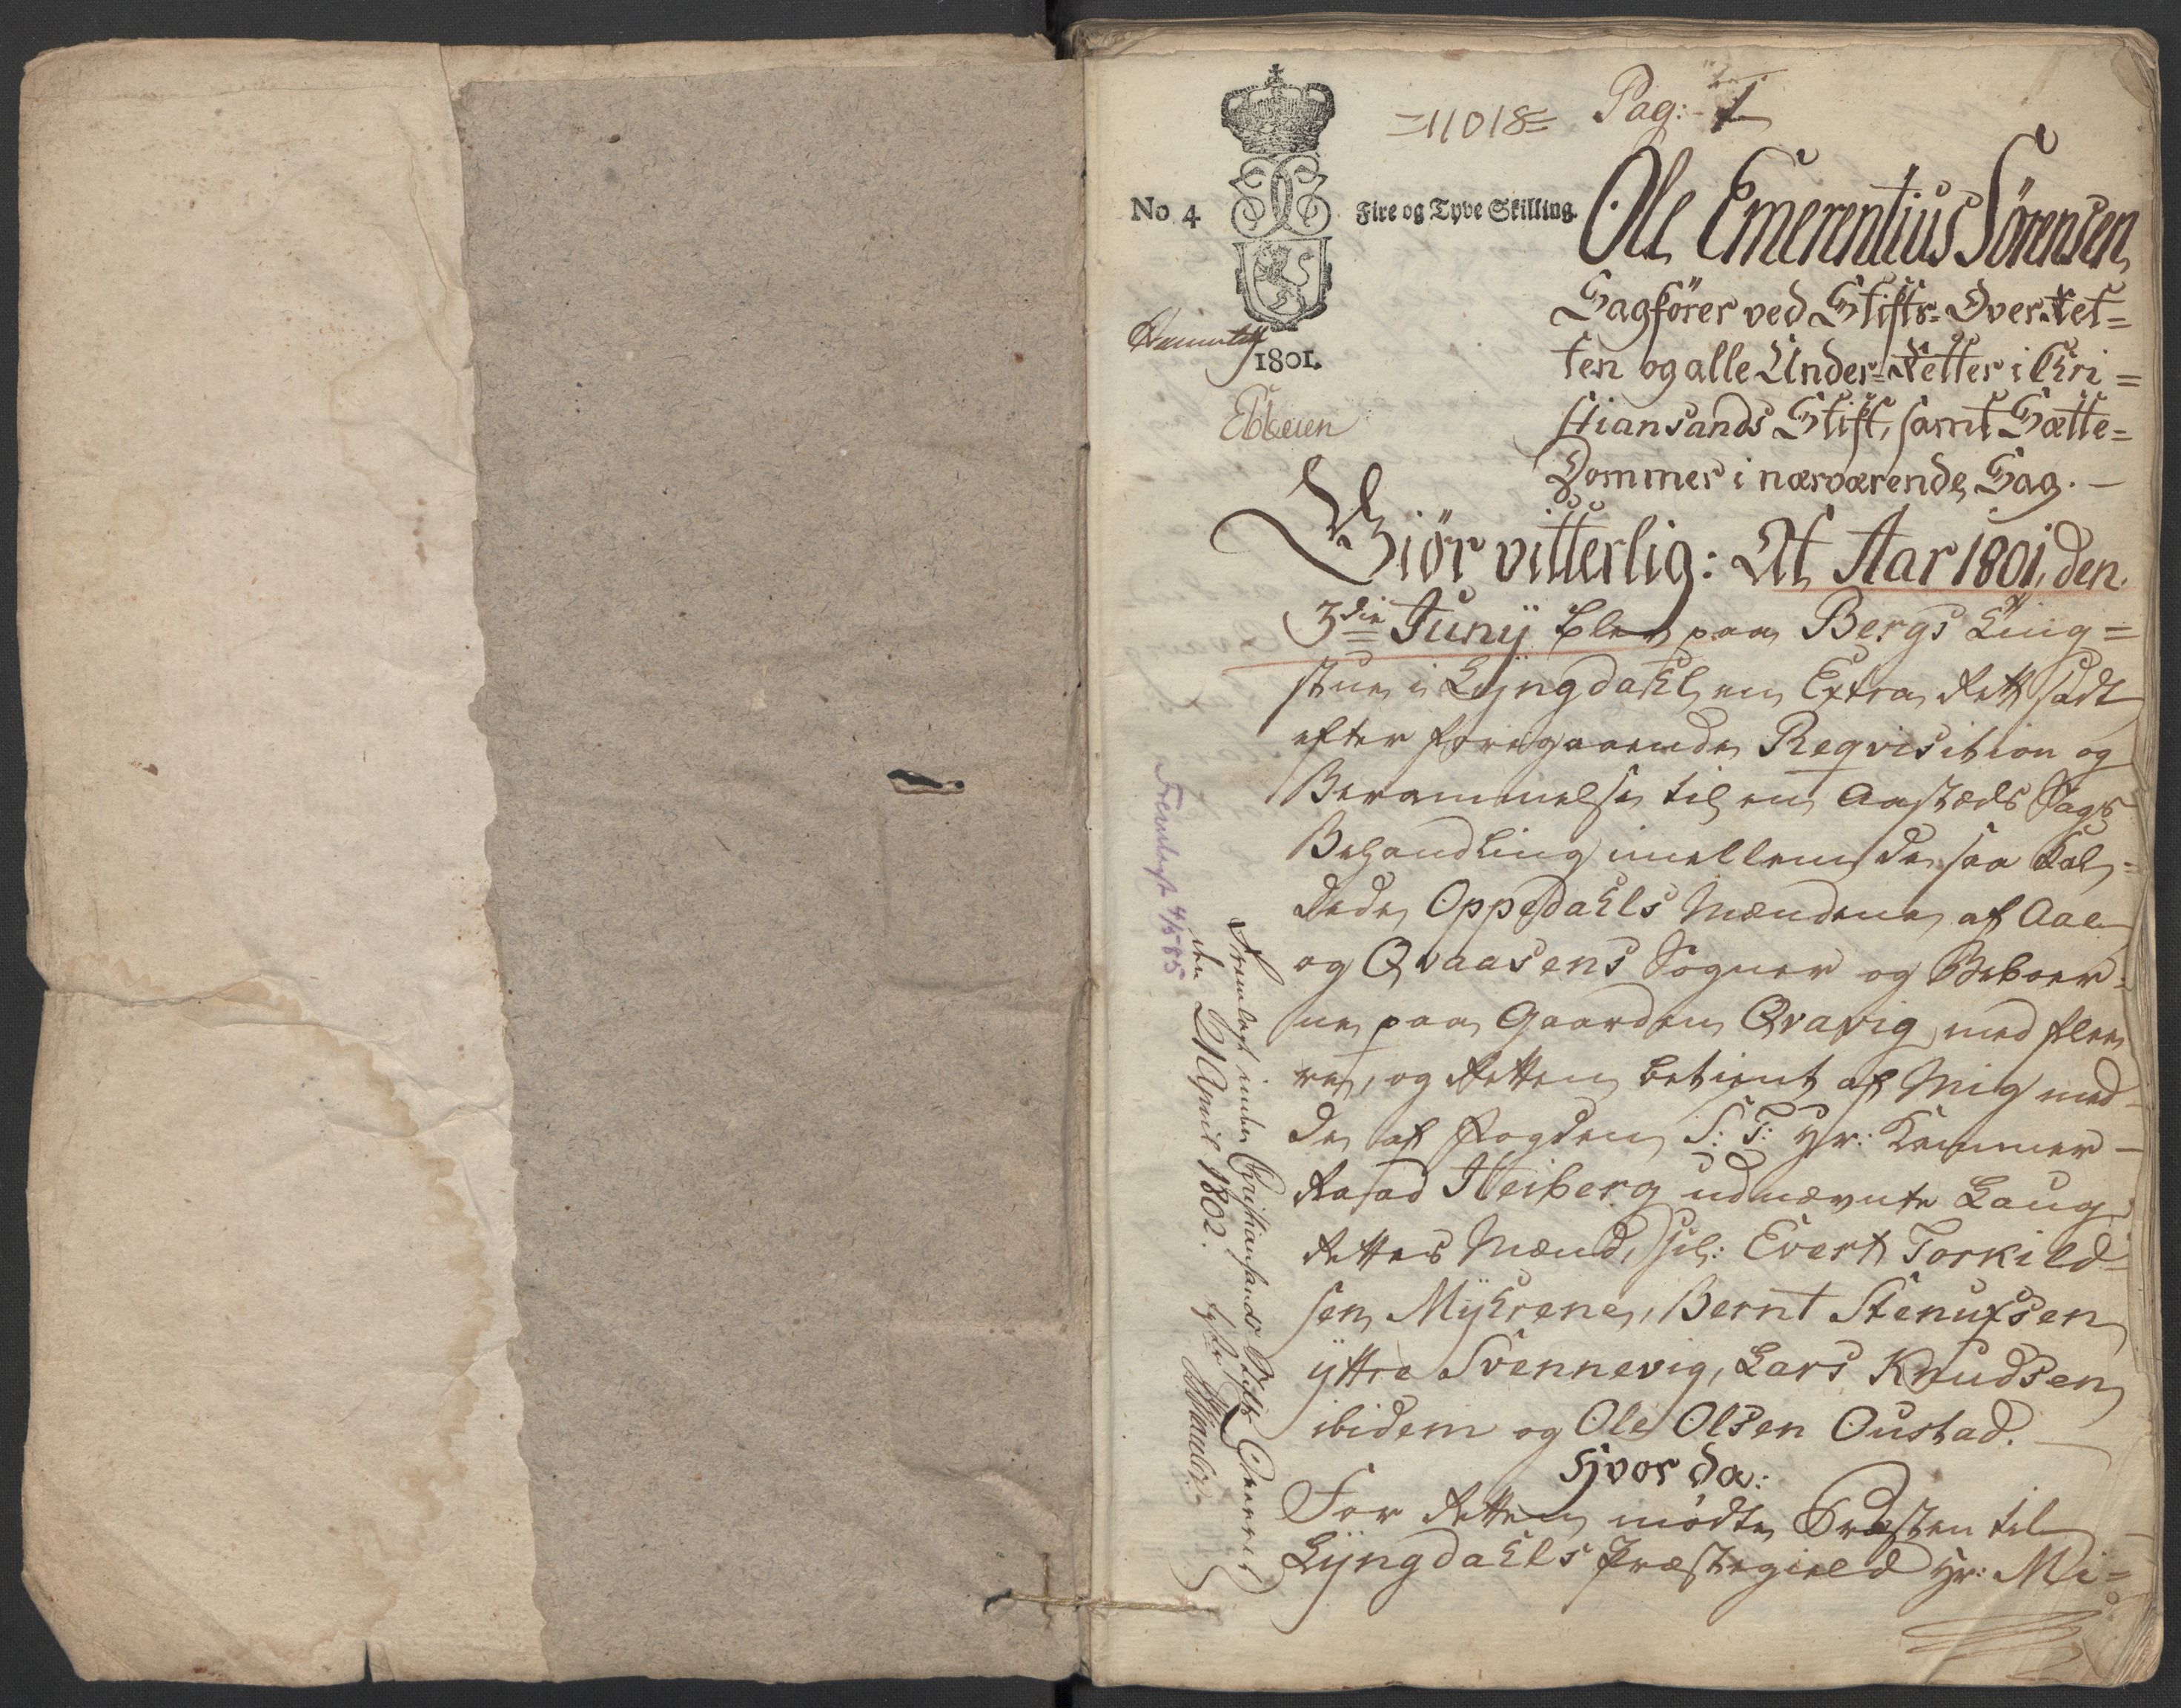 =11018= Pag: 1
No. 4 Fire og Tyve Skilling.
1801.
Ebbesen
Ole Emerentius Sörensen
Sagförer ved Stifts-Over-Ret=
ten og alle Under-Retter i Chri=
stiansands Stift, samt Sætte=
Dommer i nærværende Sag. —
Giör vitterlig: At Aar 1801, den
3die Junij blev paa Bergs Ting=
stue i Lyngdahl, en Extra Rett sadt
efter foregaaende Reqvisition og
Berammelse til en Aastæds Sags
Behandling imellem de saa kal=
dede Oppedahls Mændene af Aae
og Qvaasens Sogner og Beboer=
ne paa Gaarden Qvavig med flee
re, og Retten betient af Mig med
de af Fogden S: T: Hr: Kammer-
Raad Heiberg udnævnte Laug
Rettes Mænd, sc: Evert Torkild=
sen Myhrene, Bernt Stenufsen
ÿttre Svennevig, Lars Knudsen
ibidem og Ole Olsen Oustad. —
Hvor da:
For Retten mödte Præsten til
Lyngdahls Præstegield Hr: Mi=
Fremlagt inden Christiansands Stifts Overret
den 21 April 1802.
Fremlagt 4/5 85